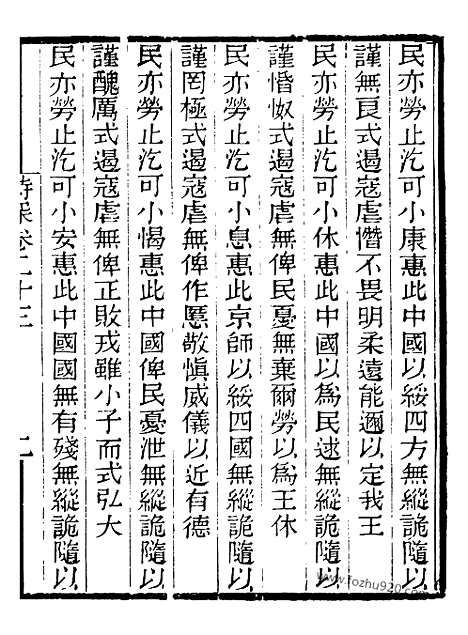 民亦勞止汔可小康惠此中國以綏四方無縱詭隨以
謹無良式遏寇虐憯不畏明柔遠能邇以定我王
民亦勞止汔可小休惠此中國以為民逑無縱詭隨以
謹惛怓式遏寇虐無俾民憂無棄爾勞以為王休
民亦勞止汔可小息惠此京師以綏四國無縱詭隨以
謹罔極式遏寇虐無俾作慝敬慎威儀以近有德
民亦勞止汔可小愒惠此中國俾民憂泄無縱詭隨以
謹醜厲式遏寇虐無俾正敗戎雖小子而式弘大
民亦勞止汔可小安惠此中國國無有殘無縱詭隨以
卷二十三
www.fozhu920.com